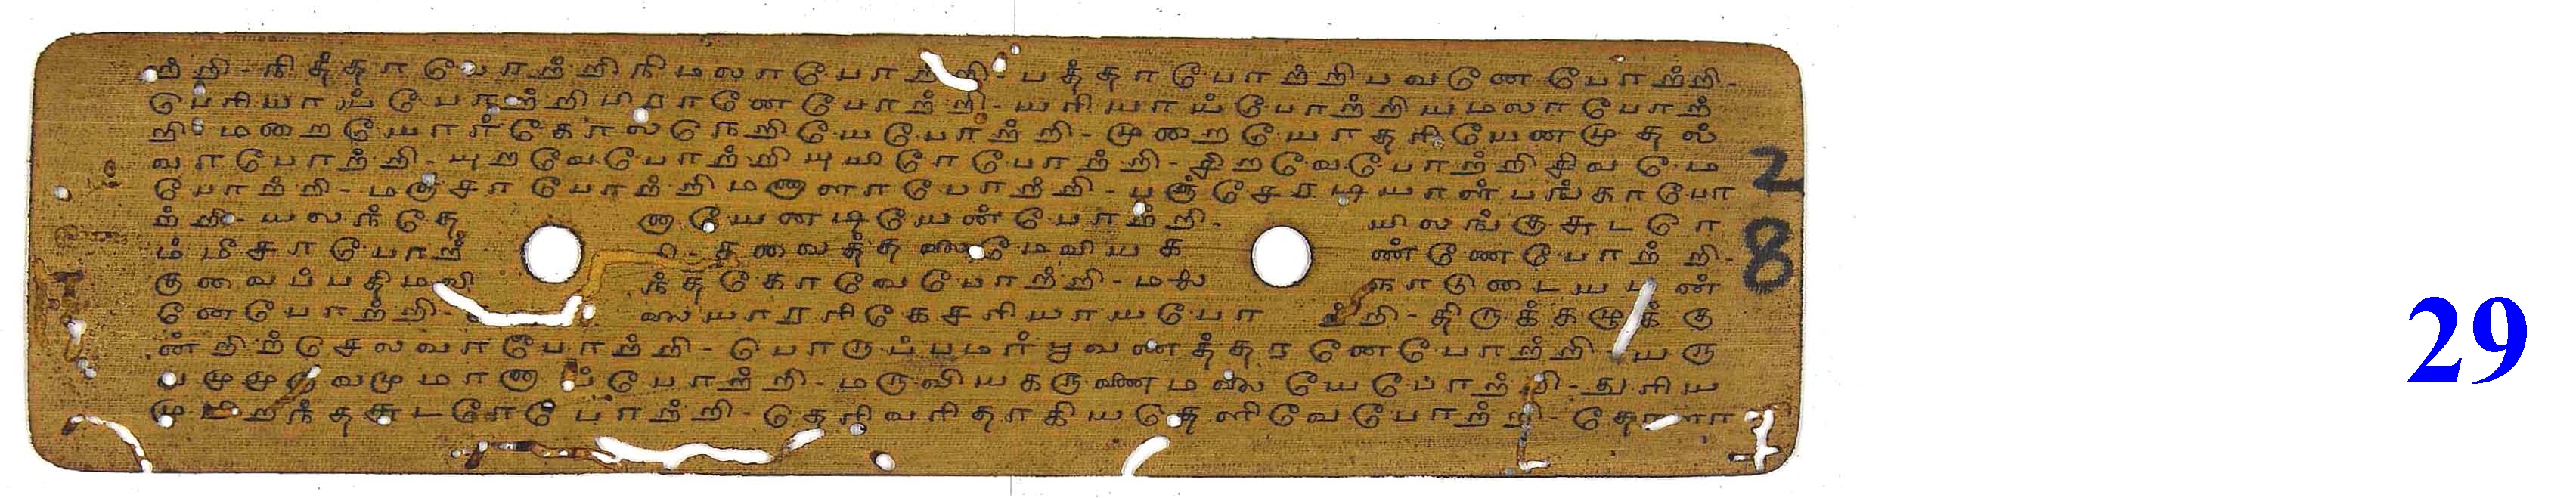 ற்றி - நித்தா போற்றி நிமலா போற்றி - பத்தா போற்றி பவனே போற்றி -
பெரியாய் போற்றி பிரானே போற்றி - யரியாய் போற்றி யமலா போற்
றி - மறையோர் கோல நெறியே போற்றி - முறையோ தரியேன முதல்
வா போற்றி - யுறவே போற்றி யுயிரே போற்றி - சிறவே போற்றி சிவமே
போற்றி - மஞ்சா போற்றி மணாளா போற்றி - பஞ்சேரடியாள் பங்கா போ
ற்றி - யலந்தே னாயேனடியேன் போற்றி - யிலங்கு சுடரெ
ம்மீசா போற் றி - கவைத்தலைமேவிய க ண்ணே போற்றி -
குவைப்பதி மலி ந்த கோவே போற்றி - மலை நாடுடைய மன்
னே போற்றி - கலையாரரிகேசரியாய போ ற்றி - திருக்கழுக்கு
ன்றிற் செலவா போற்றி - பொருப்பமர் பூவணத்தரனே போற்றி - யரு
வமுமுருவமுமானாய் போற்றி - மருவிய கருணைமலையே போற்றி - துரிய
முமிறந்த சுடரே போற்றி - தெரிவரிதாகிய தெளிவே போற்றி - தோளா
28
29